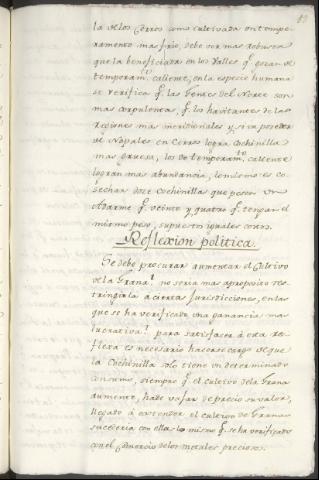 la de los Cerros como cultivada en tempe-
ramento mas frio, debe ser mas robusta
que la beneficiada en los Valles qe. gozan de
temporamto. caliente, en la especie humana
se verifica qe. las Gentes del Norte son
mas corpulentas qe. los havitantes de las
regiones mas meridionales y si un posedor
de Nopales en Cerros logra Cochinilla
mas gruesa, los de temporamto. caliente
logran mas abundancia, lo mismo es co-
sechar doce Cochinilla que pesen un
Adarme qe. veinte y quatro qe. tengan el
mismo peso, supuesto iguales
Reflexion politica.
Se debe procurar aumentar el Cultivo
de la Grana? no seria mas aproposito res-
tringirla à ciertas Jurisdicciones, en las
que se ha verificado una ganancia mas
lucrativa? para satisfacer à esta re-
flexa es necesario hacerse cargo de que
la Cochinilla solo tiene un determinado
consumo, siempre qe. el cultivo de la Grana
aumente, ha de vajar de precio su valor,
llegado à extender el cultivo de Grana
sucederia con ella lo mismo qe. se ha verificado
con el de los metales preciosos.